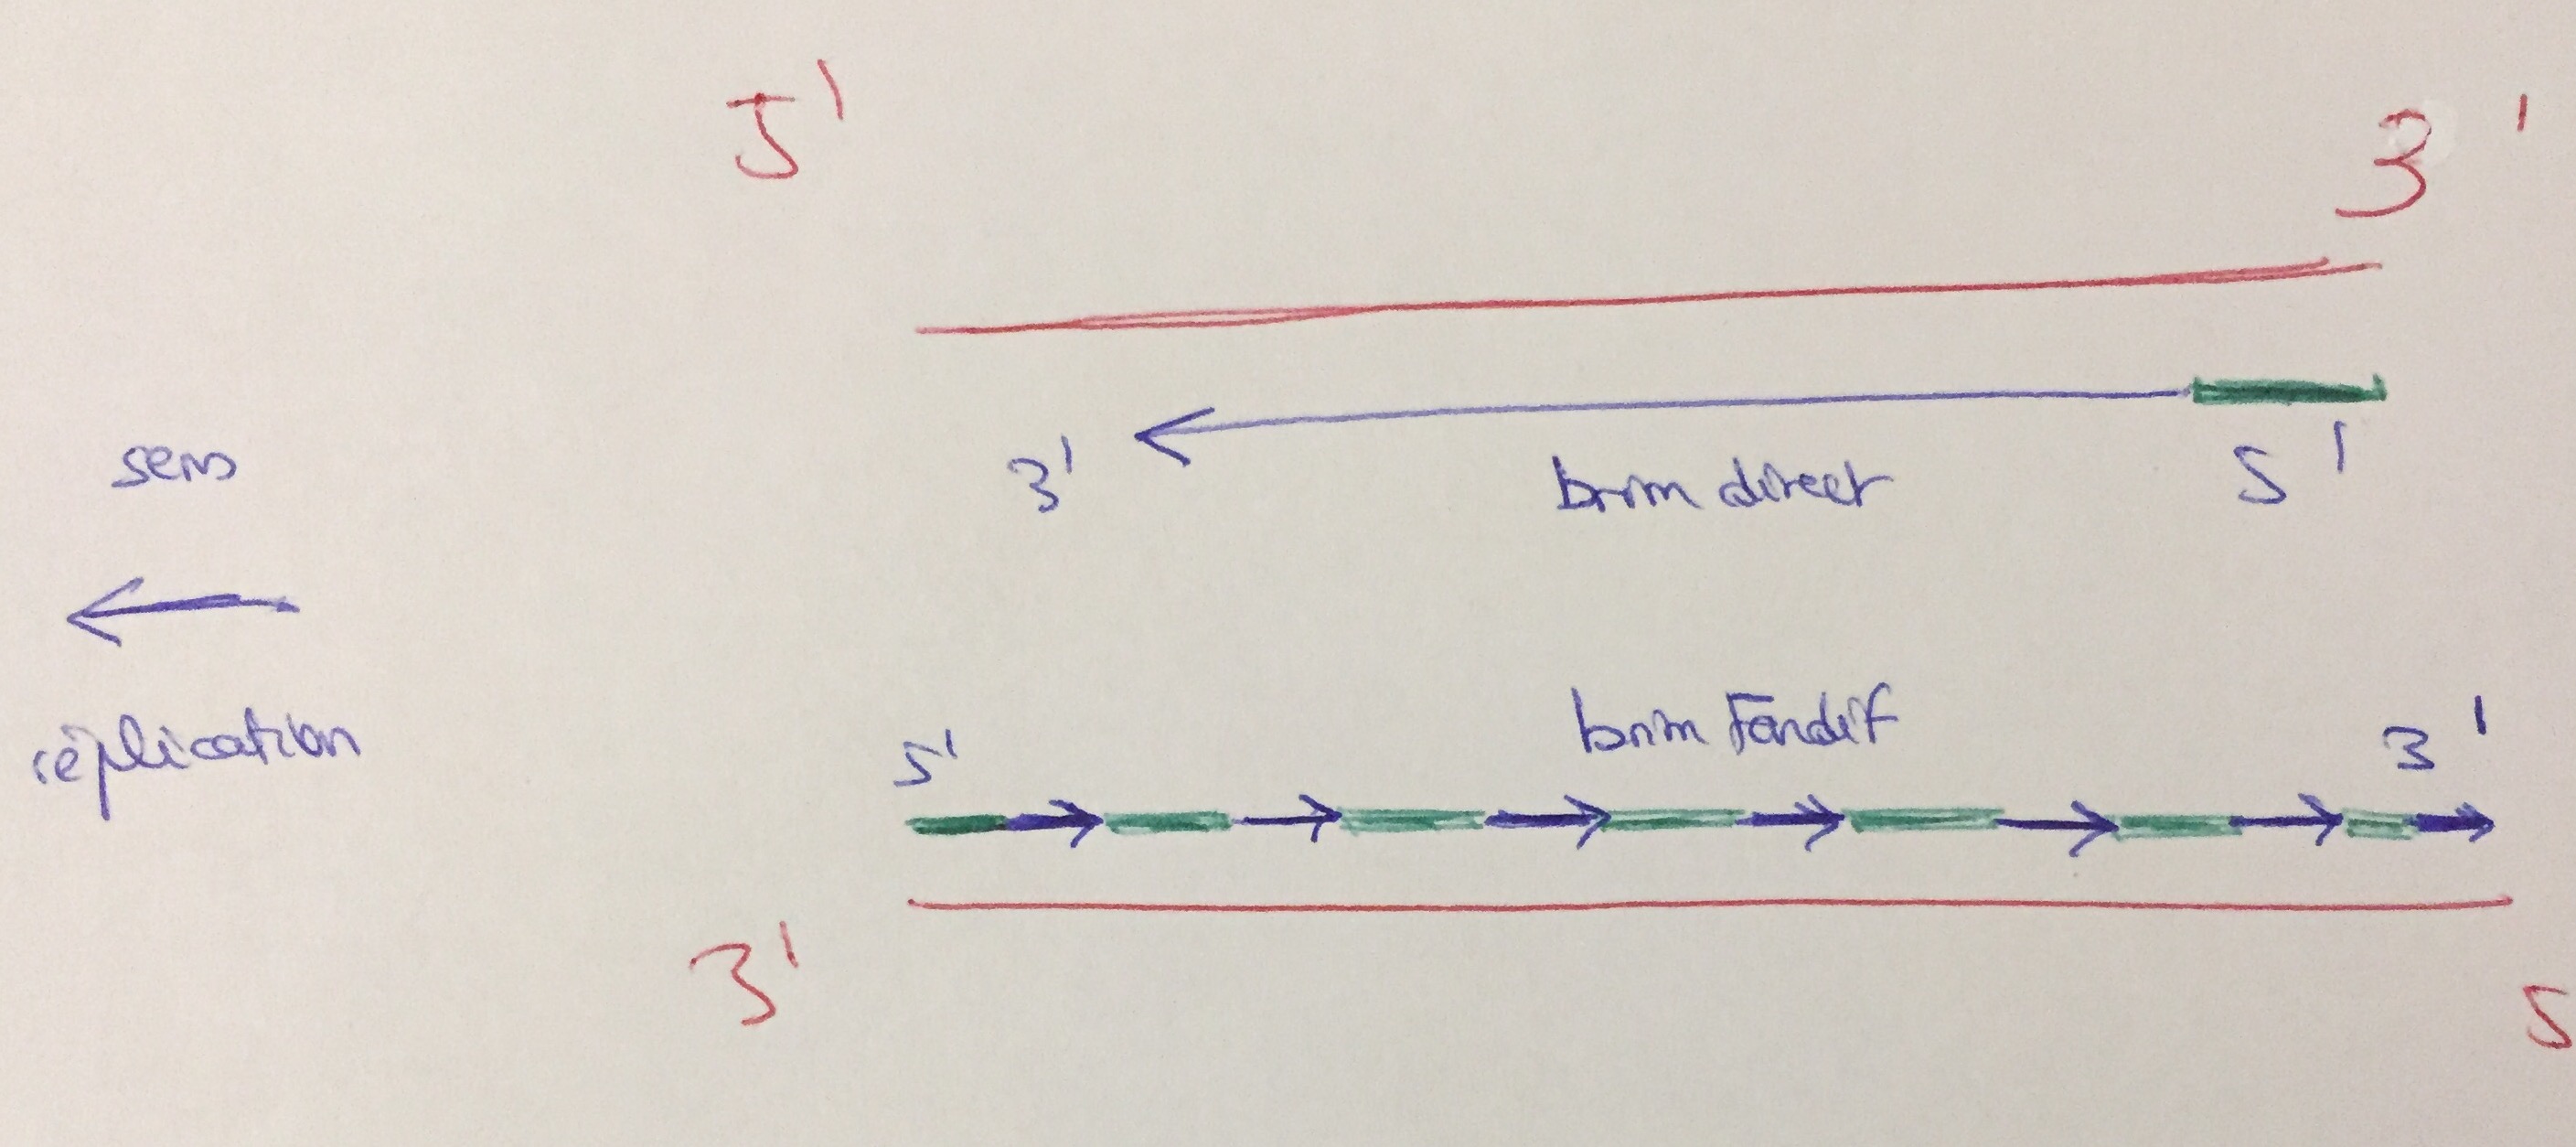 5' 3'
sens
3' brin direct 5'
réplication
5' brin Tardif 3'
3' 5